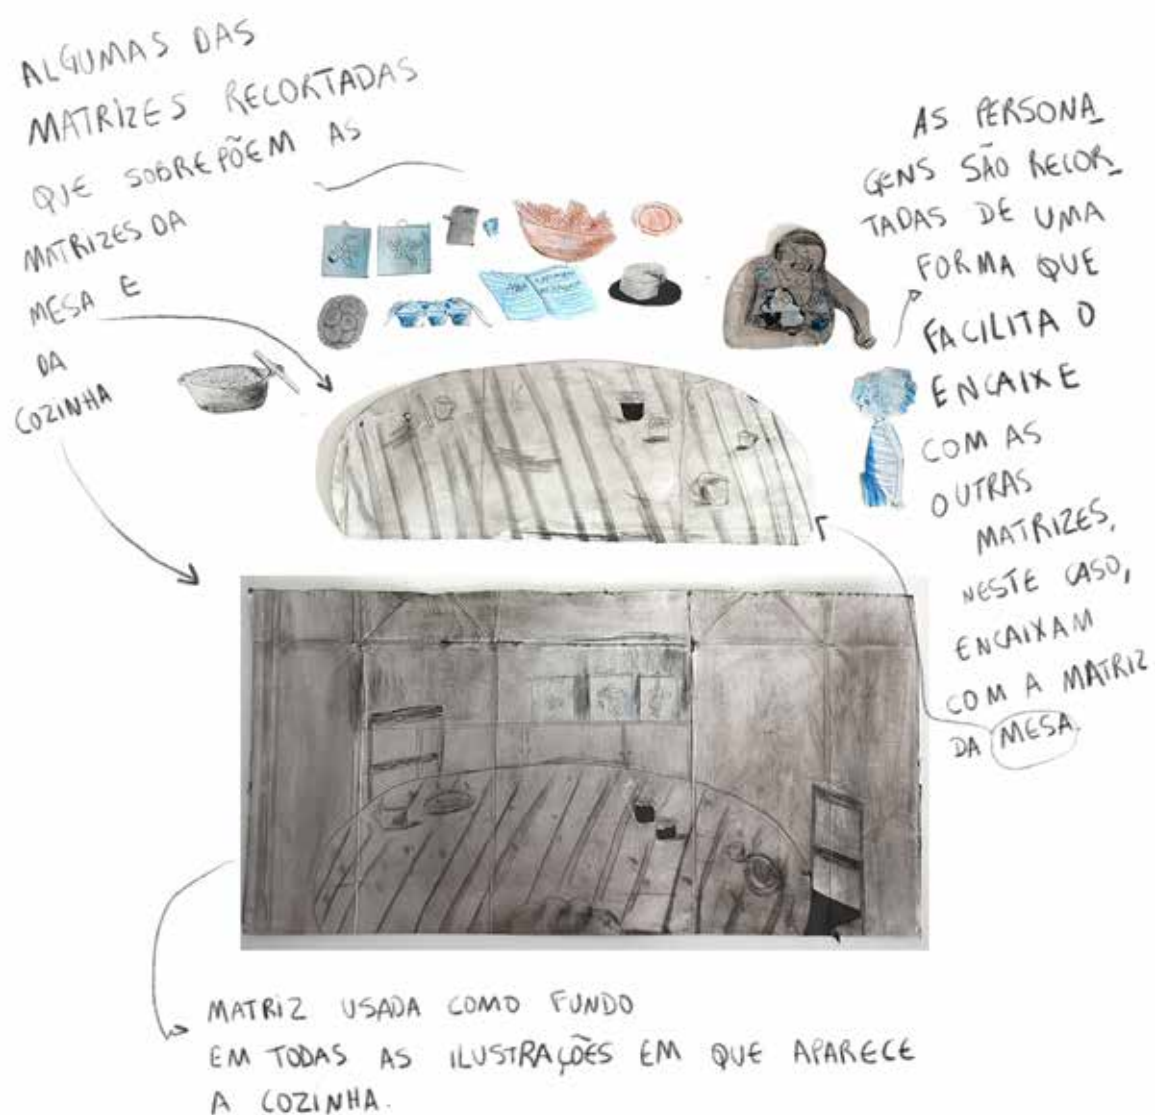 ALGUMAS DAS
MATRIZES RECORTADAS
QUE SOBREPÕEM AS
MATRIZES DA
MESA E
DA
COZINHA
AS PERSONA
GENS SÃO RECOR
TADAS DE UMA
FORMA QUE
FACILITA O
ENCAIXE
COM AS
OUTRAS
MATRIZES,
NESTE CASO,
ENCAIXAM
COM A MATRIZ
DA MESA.
MATRIZ USADA COMO FUNDO
EM TODAS AS ILUSTRAÇÕES EM QUE APARECE
A COZINHA.